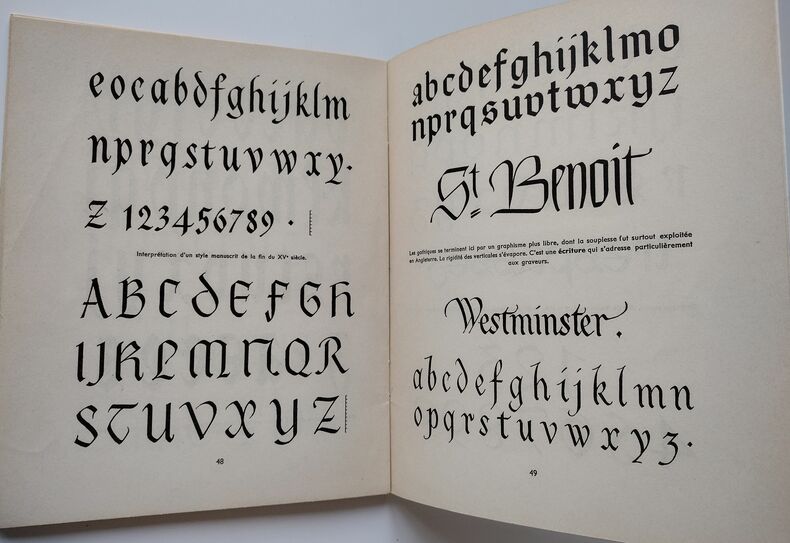 eocabdfghijklm
nprqstuvwxy.
Z 123456789 .
Interprétation d'un style manuscrit de la fin du XVe siècle.
ABCDEFGH
IJKLMNQR
STUVXYZ
48
abcdefghijklmo
nprqsuvtwxyz
St Benoit
Les gothiques se terminent ici par un graphisme plus libre, dont la souplesse fut surtout exploitée
en Angleterre. La rigidité des verticales s'évapore. C'est une écriture qui s'adresse particulièrement
aux graveurs.
Westminster.
abcdefghijklmn
opqrstuvwxyz.
49